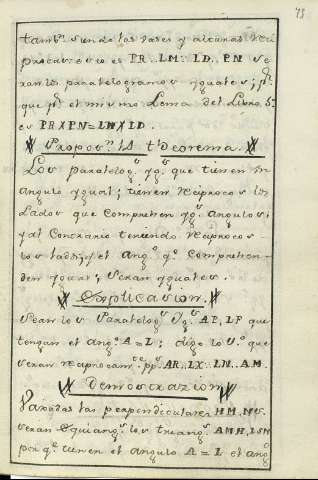 43
tambⁿ. siendo las vases y alturas reci
procas esto es PR.. LM.. LD.. PN se
ran los paralelogramos yguales; pʳ.
que pʳ. el mismo Lema del Libro 5º
es PR X PN = LM X LD.
Proposⁿ. 15 tʰeorema.
Los paralelogˢ. ygˢ. que tienen un
angulo ygual; tienen reciprocos los
Lados que comprehen ygˢ. angulos;
y al Contrario teniendo reciprocos
los lados, y el angº. qᵉ. comprehen
den ygual; seran yguales.
Explicacion.
Sean los Paralelogˢ. Ygˢ. AP, LF que
tengan el angº. A = L; digo lo 1º. que
seran reciprocamᵗᵉ. ppˢ. AR.. LX.. LN.. AM
Demostrazion
Vaxadas las perpendiculares HM, NS.
seran equiangˢ. los triangˢ. AMH, LSN
por qᵉ. tienen el angulo A = L el angº